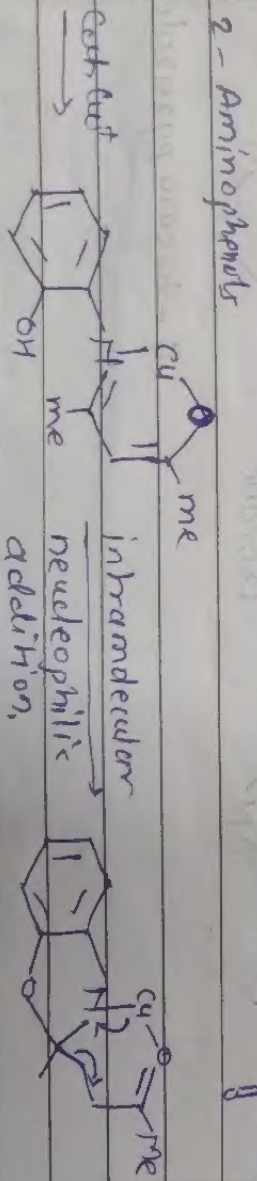 2 - Aminophenols
Cat. Cu+
OH
N
Cu
O
me
me
intramolecular
neucleophilic
addition,
O
N
Cu
O
Me